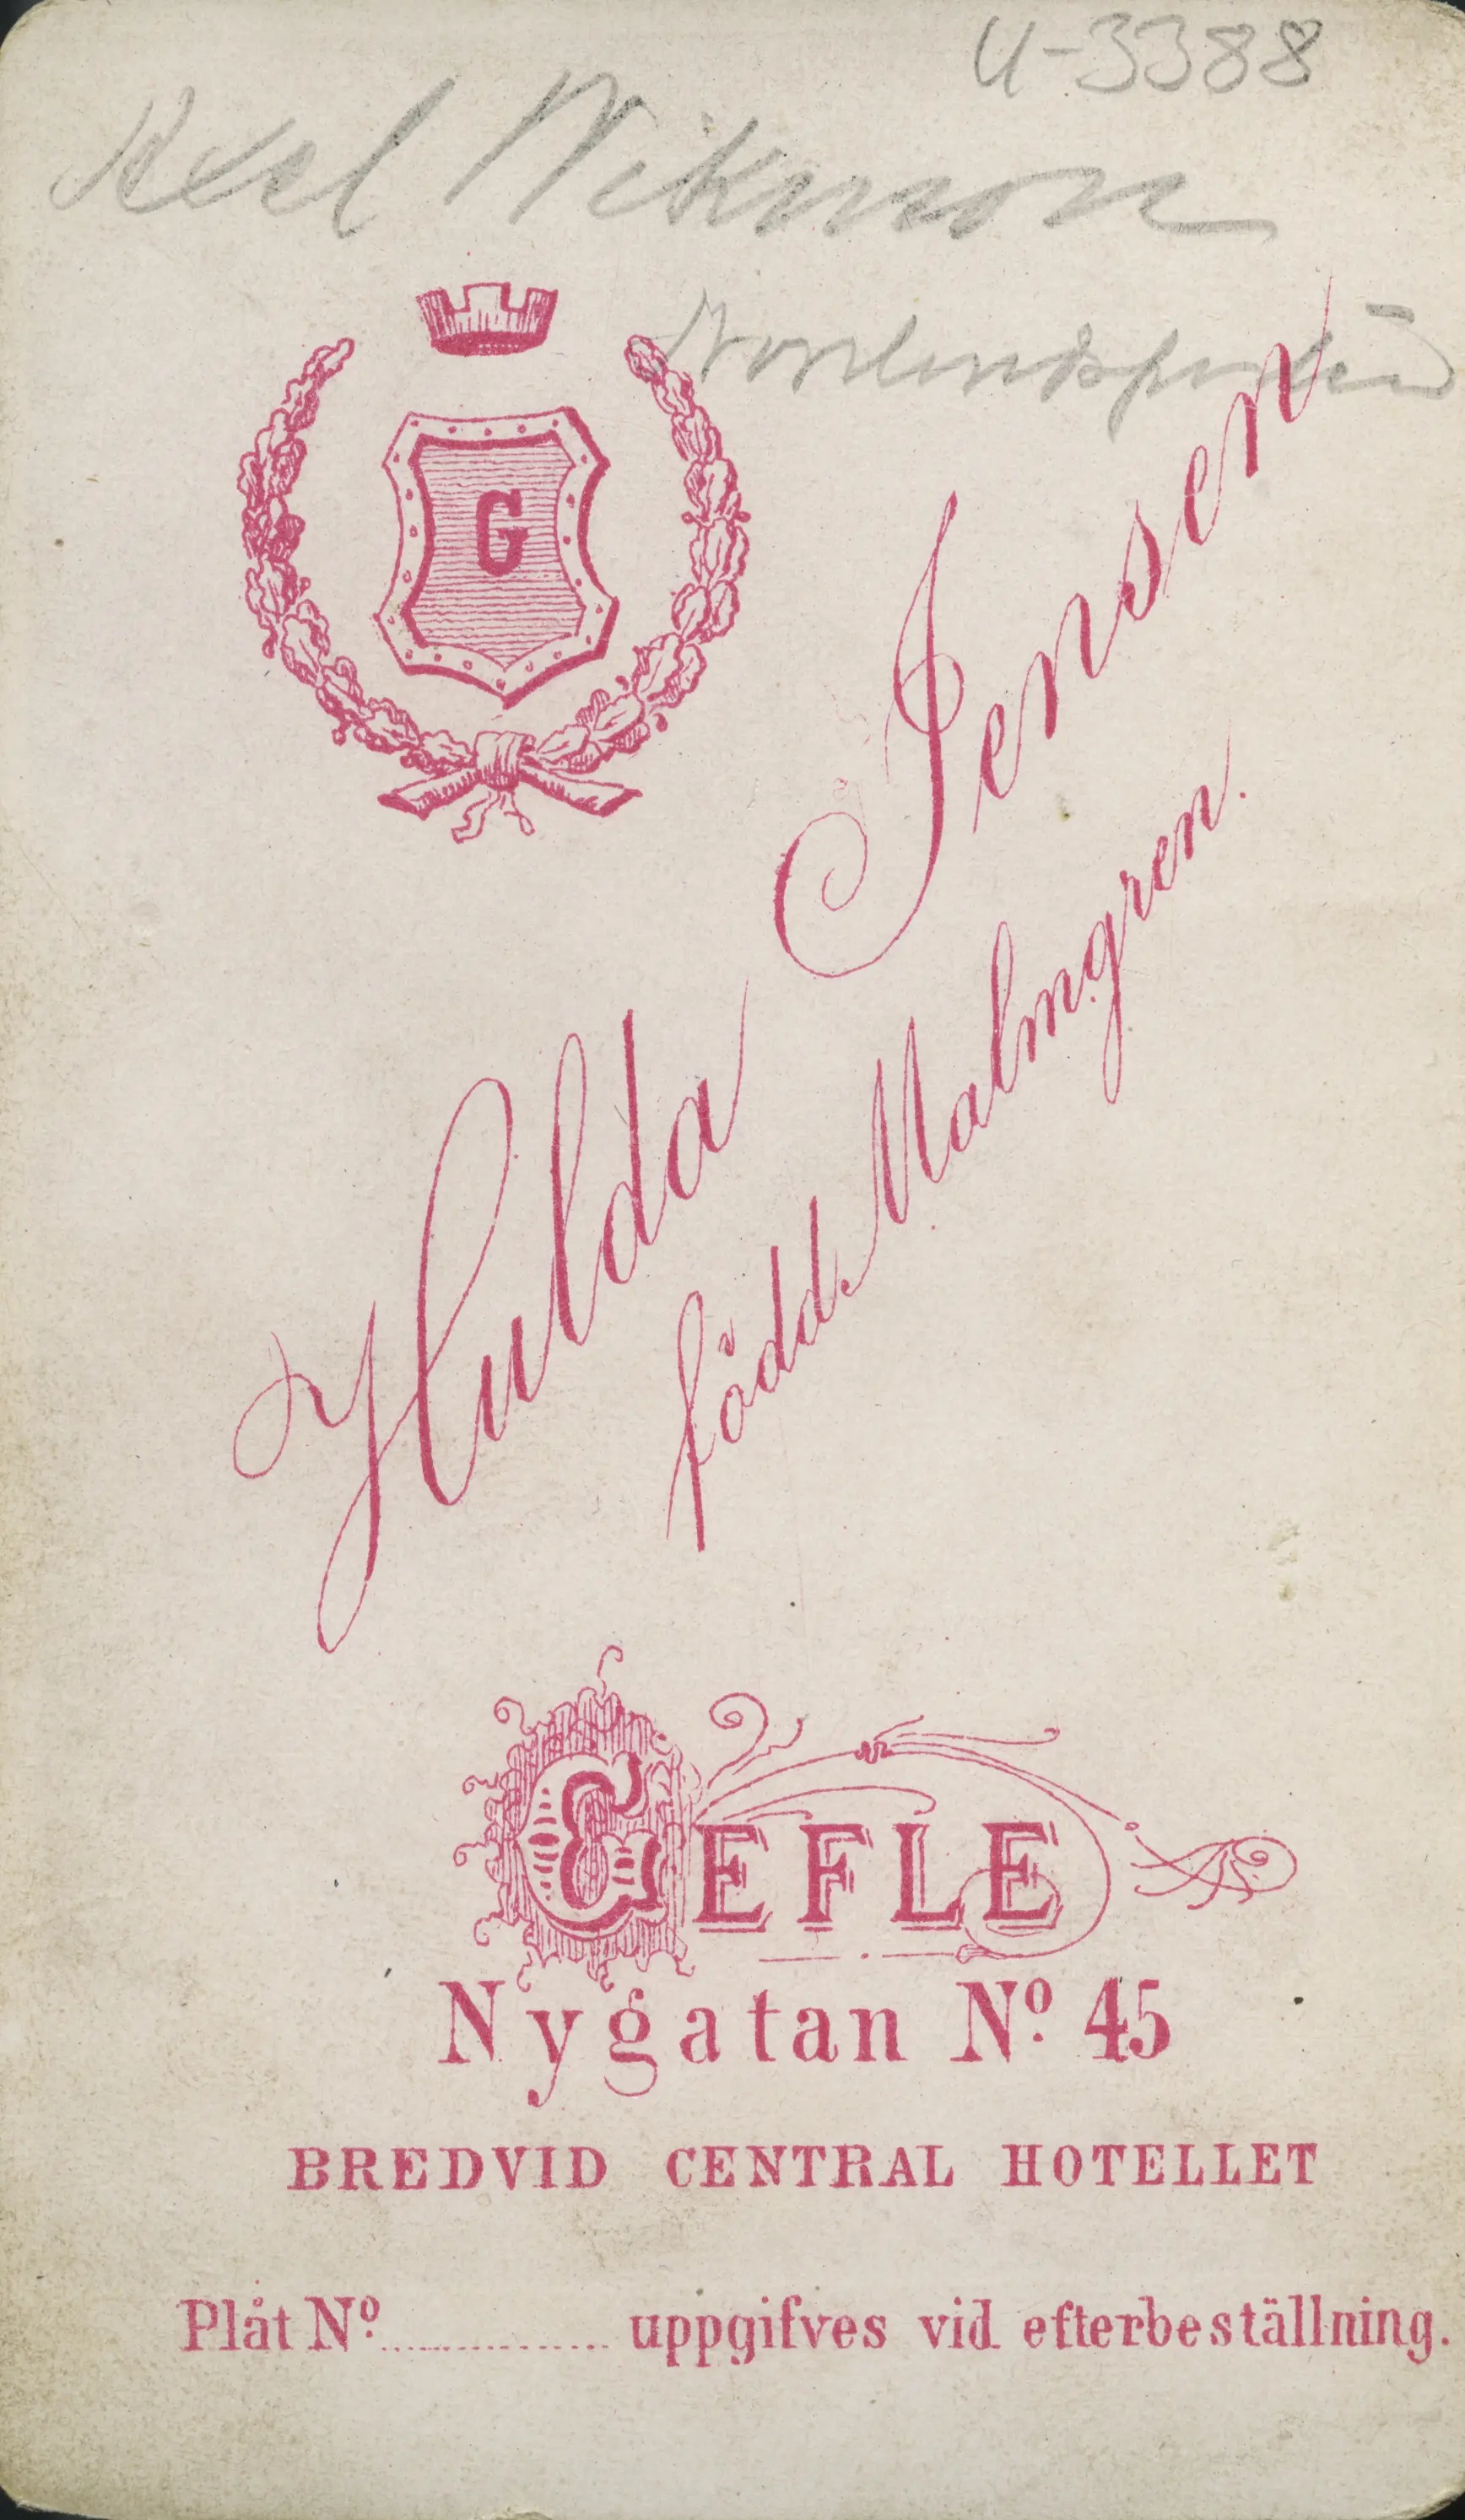 U-3388
Axel Wikman
G
Hulda Jensen
född. Malmgren.
GEFLE
Nygatan No. 45
BREDVID CENTRAL HOTELLET
Plåt No. .............. uppgifves vid efterbeställning.